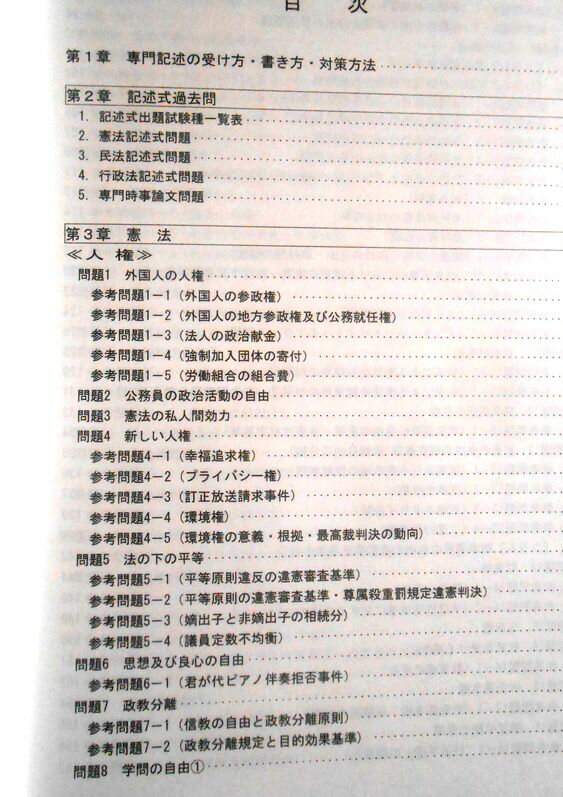 目 次
第1章 専門記述の受け方・書き方・対策方法
第2章 記述式過去問
1. 記述式出題試験種一覧表
2. 憲法記述式問題
3. 民法記述式問題
4. 行政法記述式問題
5. 専門時事論文問題
第3章 憲 法
≪人 権≫
問題1 外国人の人権
参考問題1-1(外国人の参政権)
参考問題1-2(外国人の地方参政権及び公務就任権)
参考問題1-3(法人の政治献金)
参考問題1-4(強制加入団体の寄付)
参考問題1-5(労働組合の組合費)
問題2 公務員の政治活動の自由
問題3 憲法の私人間効力
問題4 新しい人権
参考問題4-1(幸福追求権)
参考問題4-2(プライバシー権)
参考問題4-3(訂正放送請求事件)
参考問題4-4(環境権)
参考問題4-5(環境権の意義・根拠・最高裁判決の動向)
問題5 法の下の平等
参考問題5-1(平等原則違反の違憲審査基準)
参考問題5-2(平等原則の違憲審査基準・尊属殺重罰規定違憲判決)
参考問題5-3(嫡出子と非嫡出子の相続分)
参考問題5-4(議員定数不均衡)
問題6 思想及び良心の自由
参考問題6-1(君が代ピアノ伴奏拒否事件)
問題7 政教分離
参考問題7-1(信教の自由と政教分離原則)
参考問題7-2(政教分離規定と目的効果基準)
問題8 学問の自由①